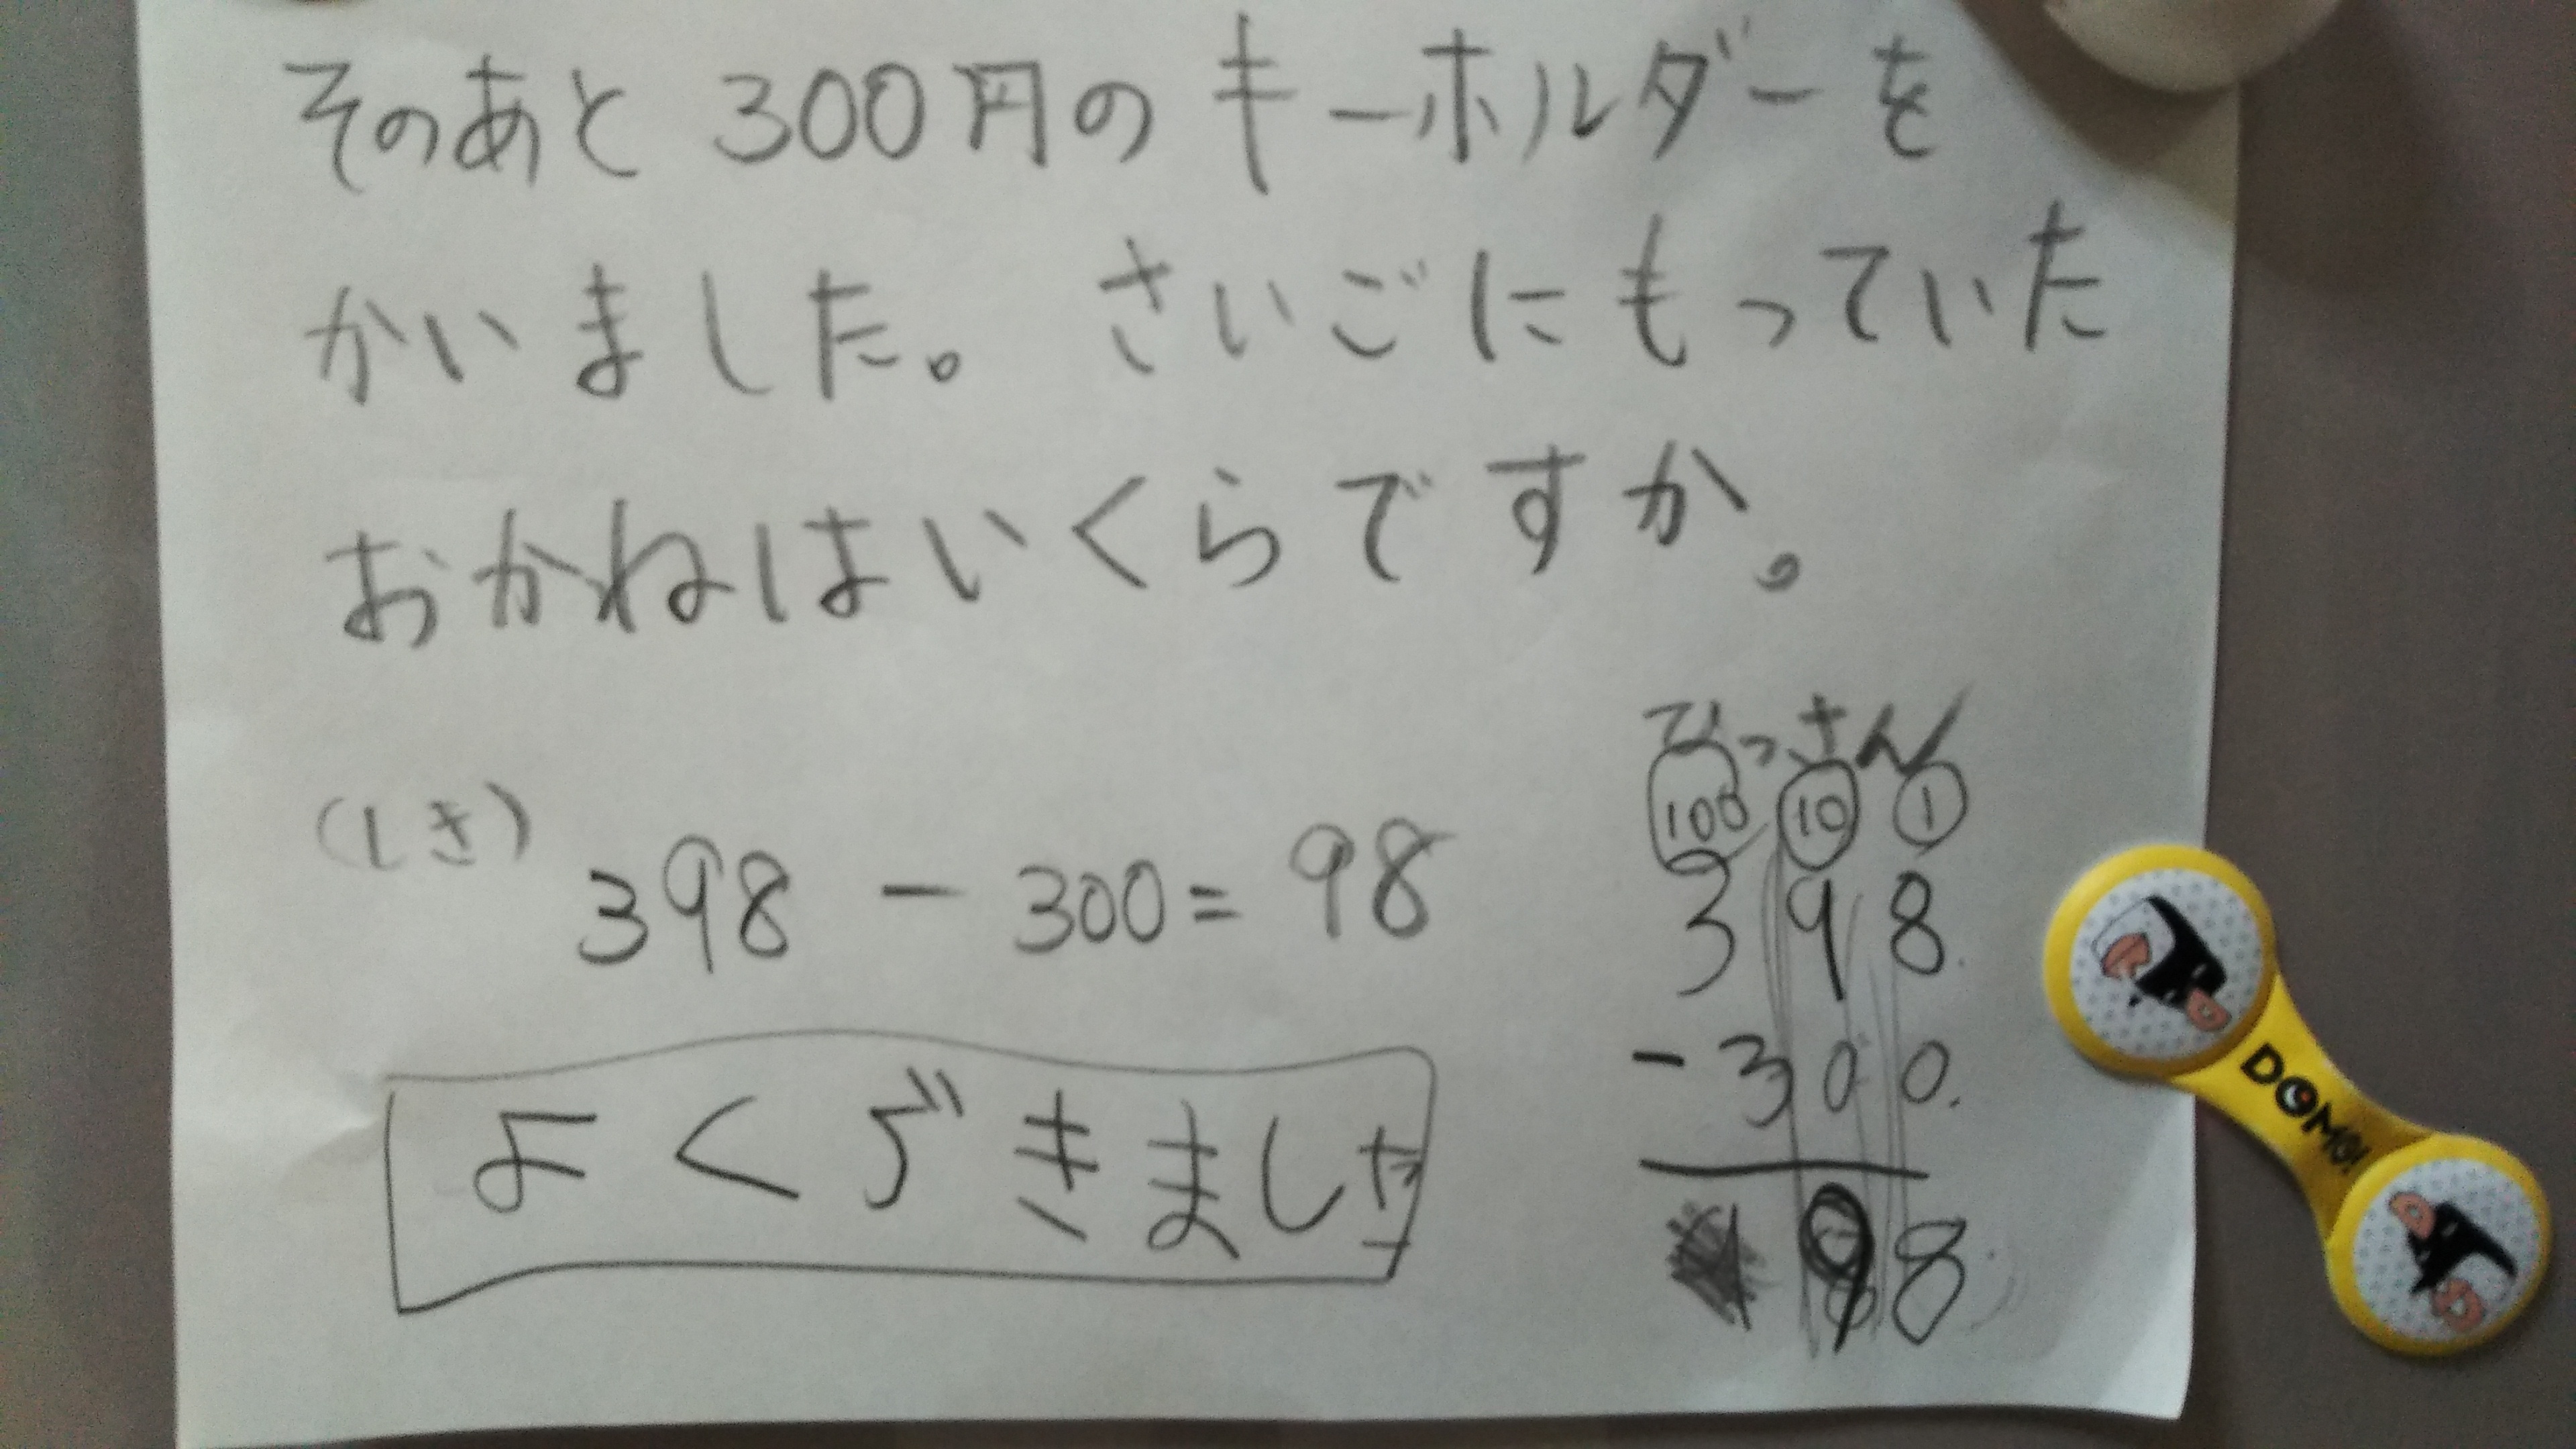 そのあと 300円のキーホルダーを
かいました。さいごにもっていた
おかねはいくらですか。
(しき)
398 - 300 = 98
よくできました
ひっさん
100 10 1
398
-300
98
DOMO!